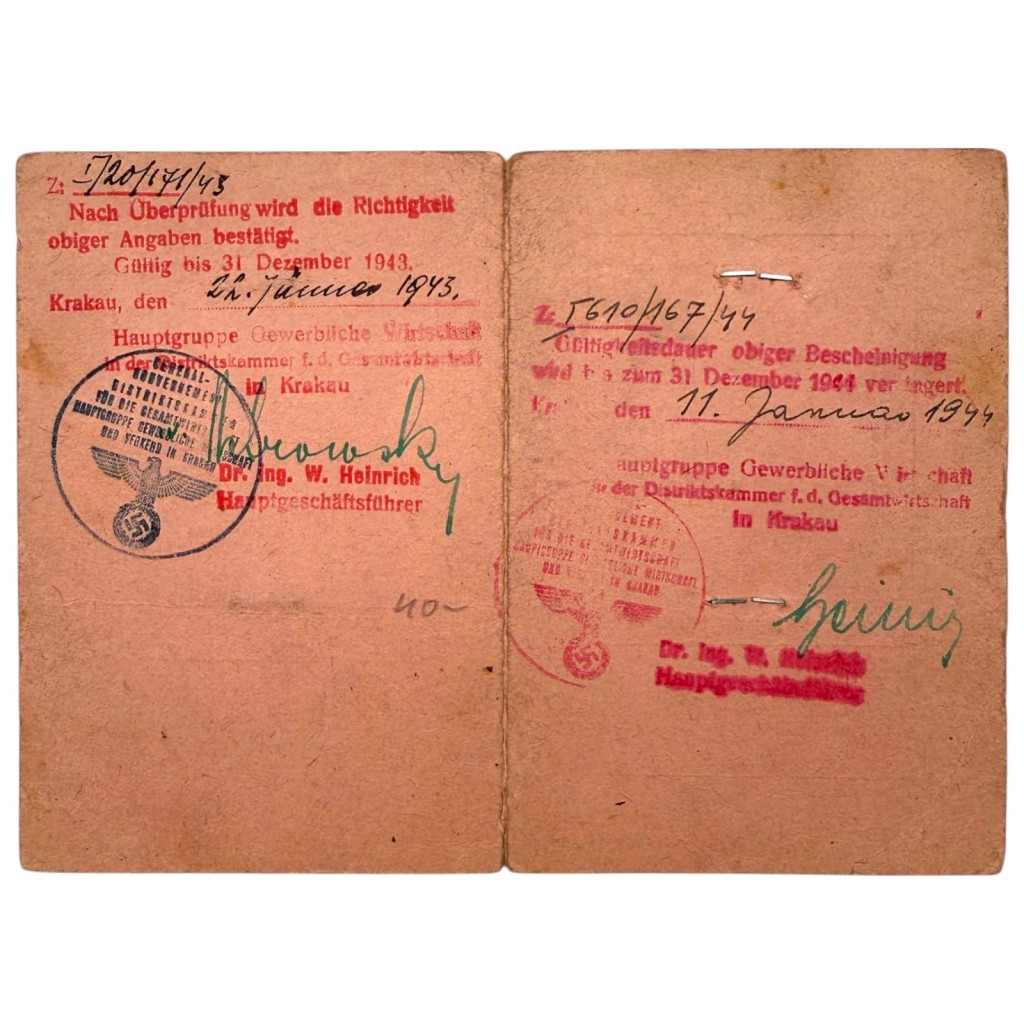 Z: I/20/171/43
Nach Überprüfung wird die Richtigkeit
obiger Angaben bestätigt.
Gültig bis 31 Dezember 1943.
Krakau, den 22. Januar 1943.
Hauptgruppe Gewerbliche Wirtschaft
in der Distriktskammer f. d. Gesamtwirtschaft
in Krakau
GENERAL-
GOUVERNEMENT
DISTRIKTSKAMMER
FÜR DIE GESAMTWIRTSCHAFT
HAUPTGRUPPE GEWERBLICHE WIRTSCHAFT
UND VERKEHR IN KRAKAU
Dr. Ing. W. Heinrich
Hauptgeschäftsführer
40-
Z: 5610/167/44
Gültigkeitsdauer obiger Bescheinigung
wird bis zum 31 Dezember 1944 verlängert.
Kr den 11. Januar 1944
auptgruppe Gewerbliche Wirtschaft
in der Distriktskammer f. d. Gesamtwirtschaft
in Krakau
NEMENT
SKAMMER
FÜR DIE GESAMTWIRTSCHAFT
HAUPTGRUPPE GEWERBLICHE WIRTSCHAFT
UND VERKEHR IN KRAKAU
Dr. Ing. W. Heinrich
Hauptgeschäftsführer